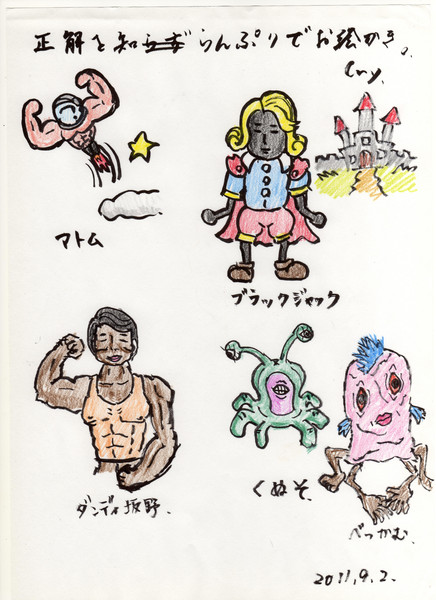 正解を知らずらんぷりでお絵かき。
Cry.
アトム
ブラックジャック
ダンディ坂野.
くぬそ.
べっかむ.
2011.9.2.